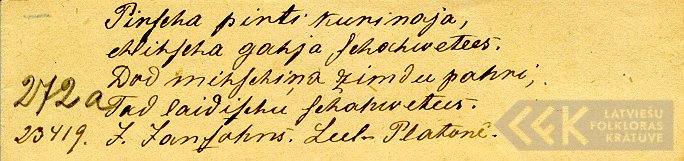 Pirscha pirti kurinaja,
Mikscha gahja schahwetees.
Dod mikschina zimdu pahri,
Tad laidischu schahwetees.
272a
23419. J. Jansohns. Leel-Platonê.
LATVIEŠU
FOLKLORAS
KRĀTUVE
LFK